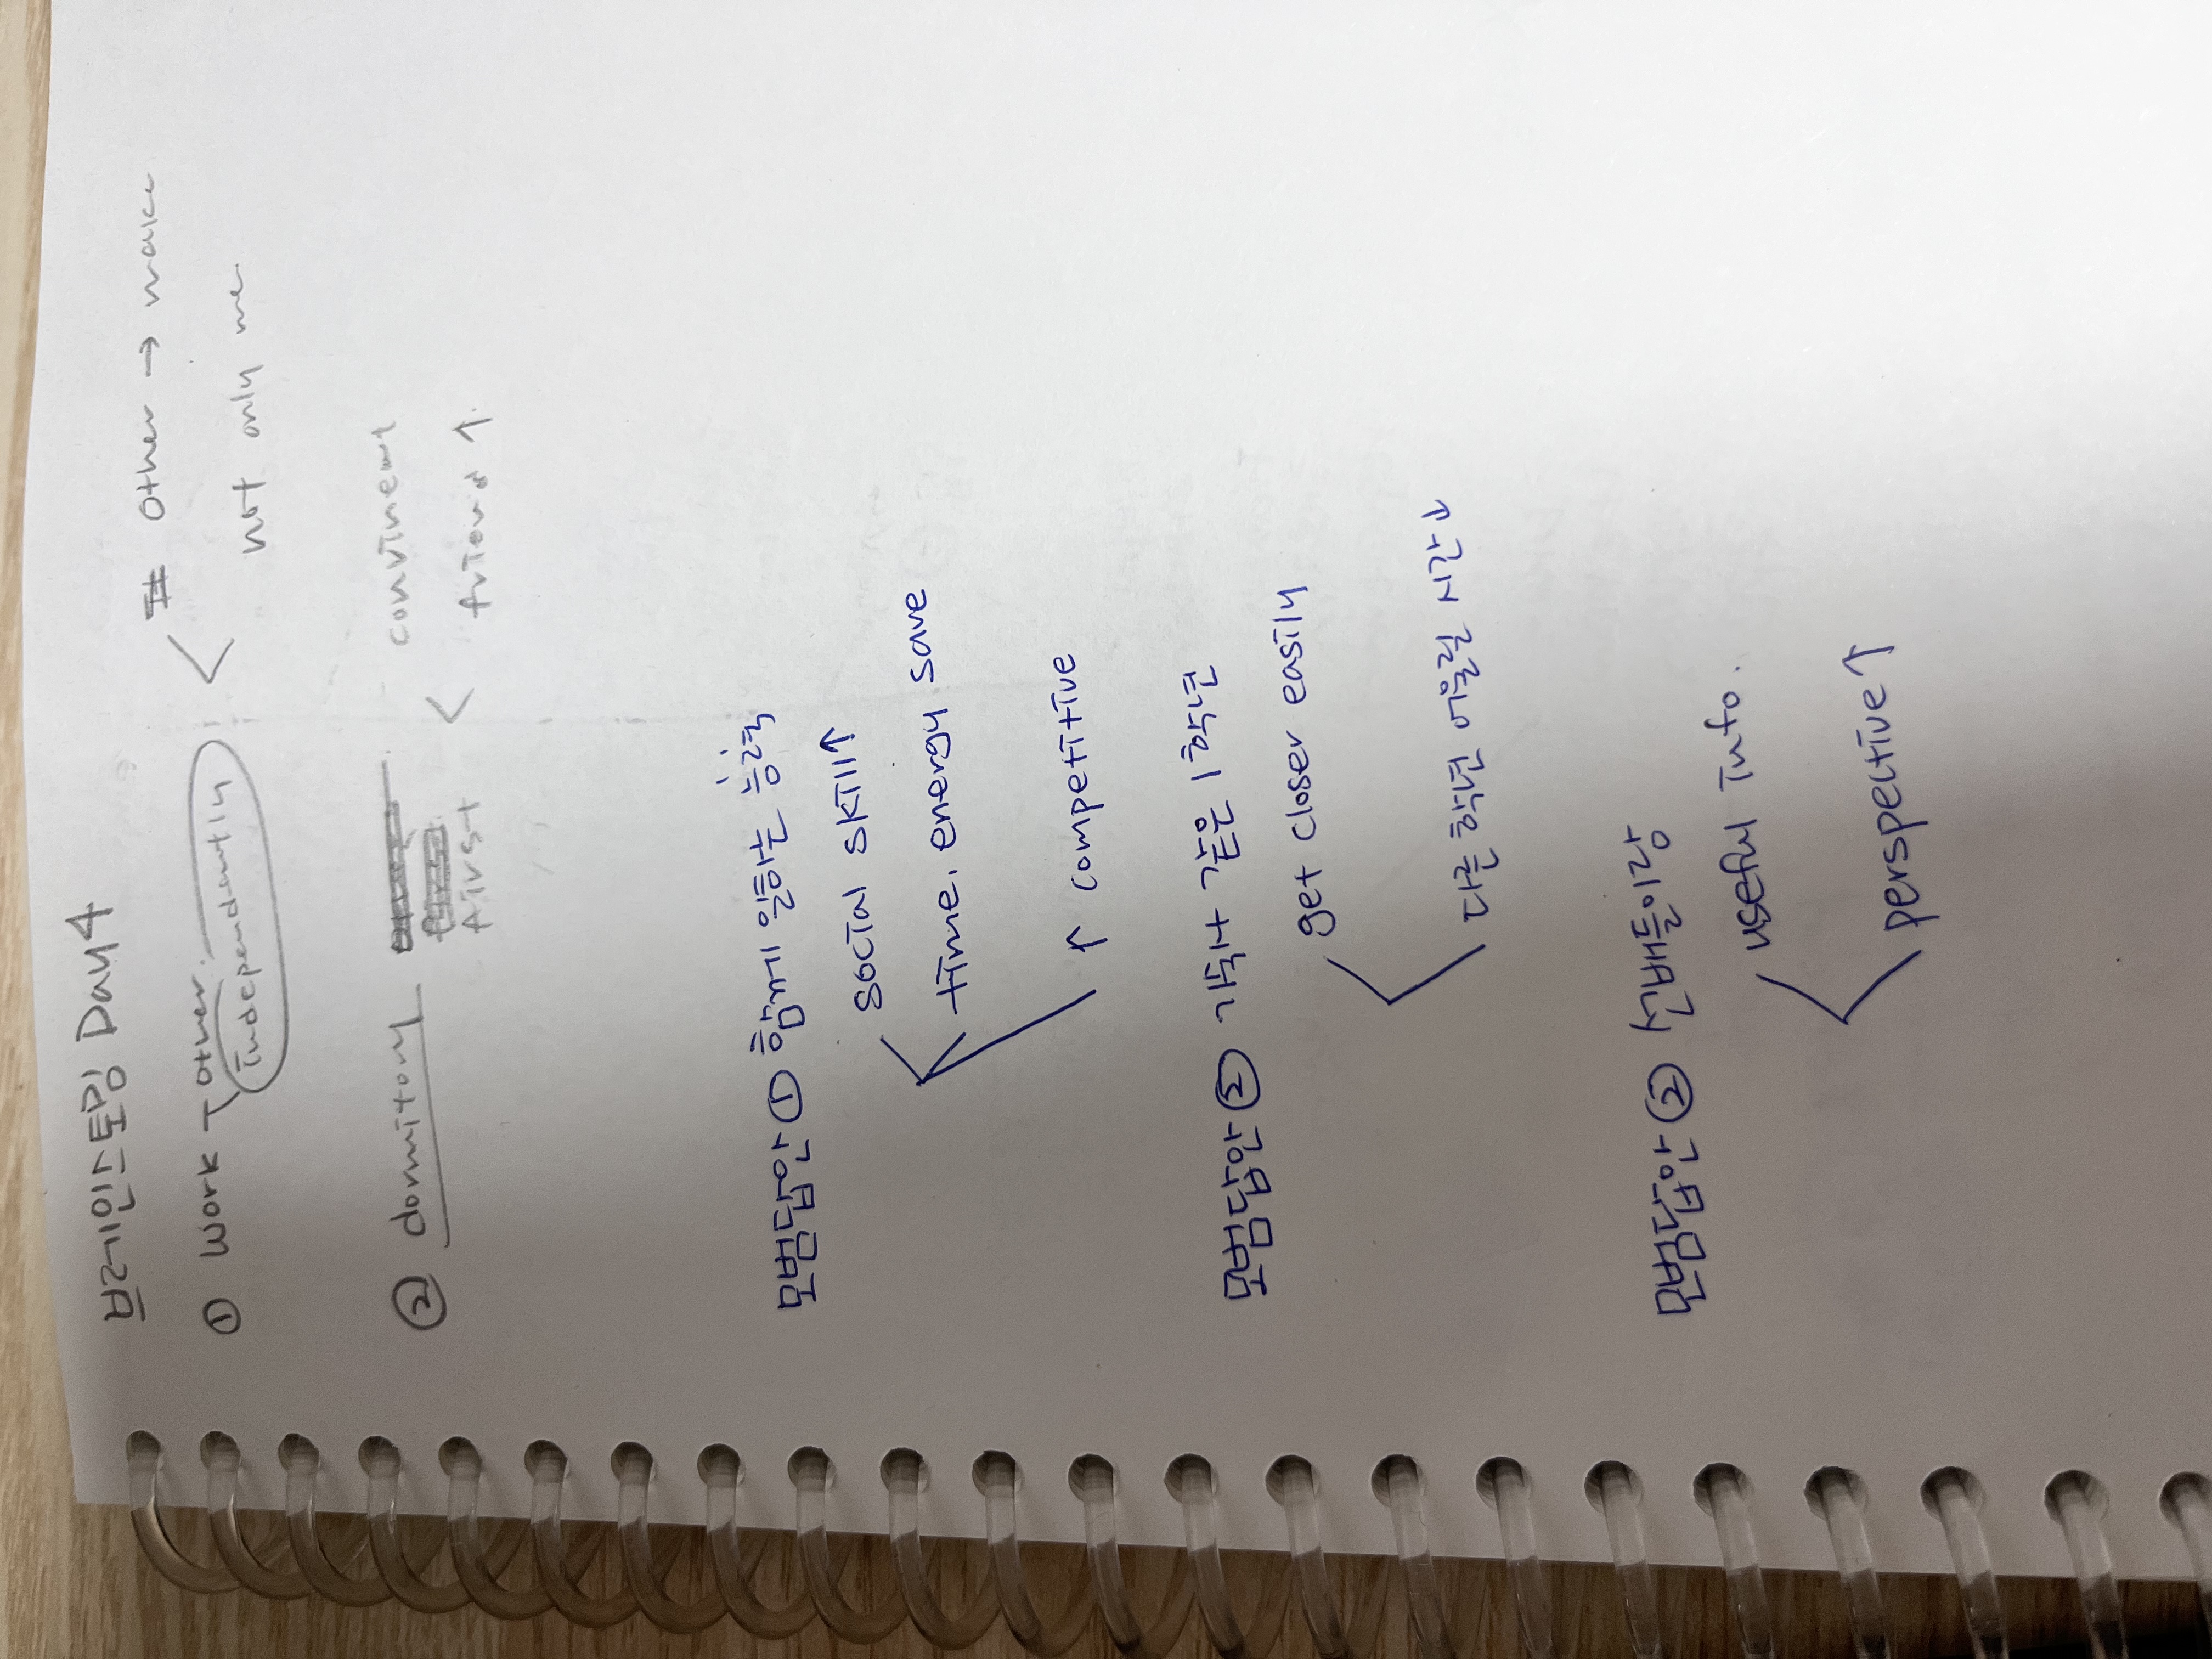 브레인스토밍 Day 4
① work other. # other → make
independently not only me
② dormitory convinent
first friend ↑
모범답안 ① 함께 일하는 능력
social skill↑
time, energy save
↑ competitive
모범답안 ② 기숙사 같은 1학년
get closer easily
다른 학년 어울릴 시간↓
모범답안 ② 선배들이랑
useful info.
perspective↑